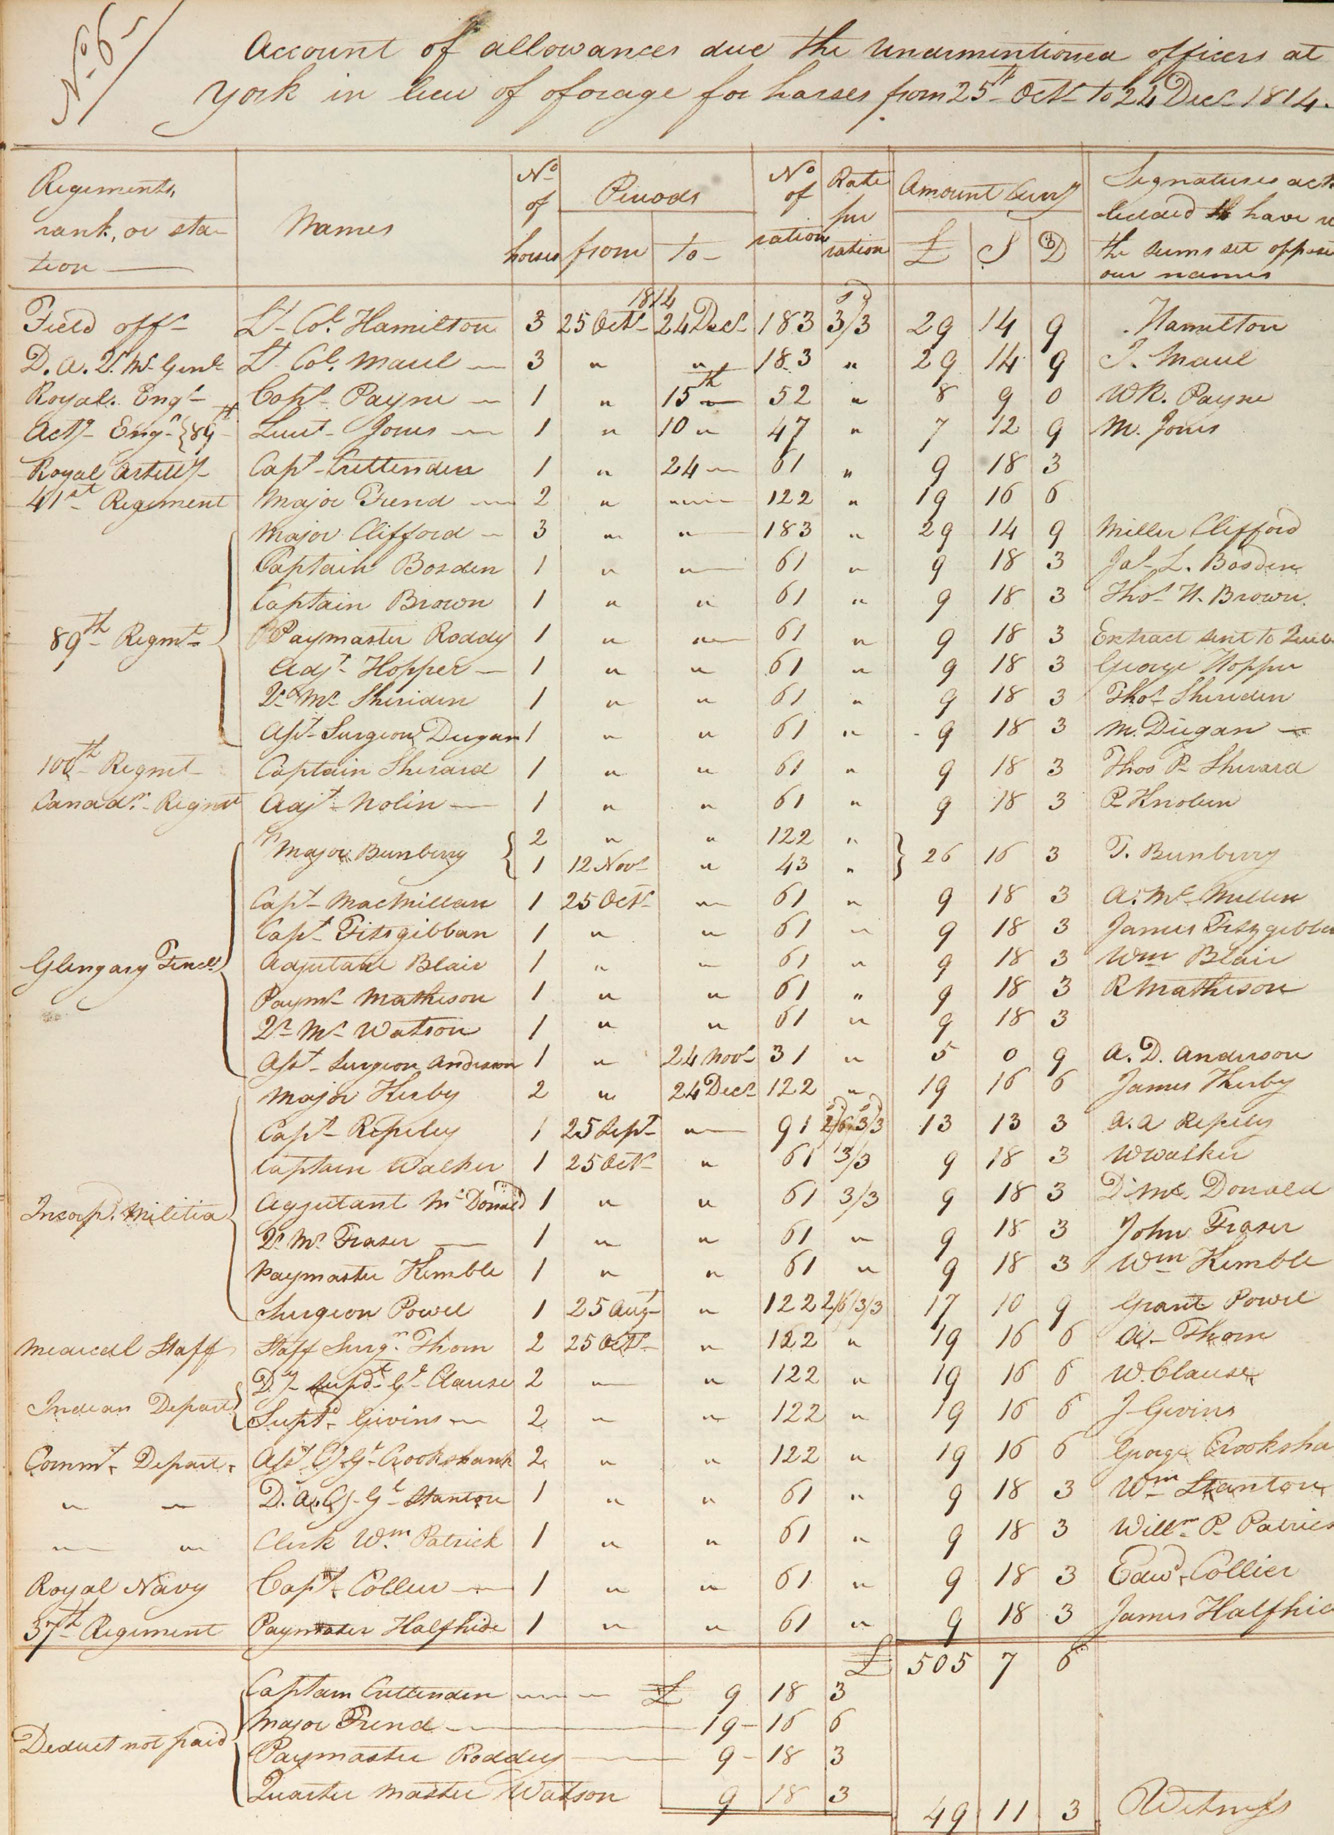 No. 6
Account of allowances due the undermentioned officers at
York in lieu of forage for horses from 25th Octr to 24 Decr 1814.
Regiments, rank, or station Names No of horses Periods from to No of rations Rate per ration Amount Curry £ S D Signatures
the sums set oppos
our names
1814
Field offr Lt Col. Hamilton 3 25 Octr 24 Decr 183 3/3 29 14 9 Hamilton
D. A. Qr Mr Genl Lt Col. Maule 3 " " 183 " 29 14 9 J. Maule
Royal Engr Capt Payne 1 " 15th 52 " 8 9 0 WR. Payne
Actg Engr {89th Lieut Jones 1 " 10 " 47 " 7 12 9 M. Jones
Royal Artilly Capt Cruttenden 1 " 24 61 " 9 18 3
41st Regiment Major Frend 2 " " 122 " 19 16 6
Major Clifford 3 " " 183 " 29 14 9 Miller Clifford
Captain Bosden 1 " " 61 " 9 18 3 Jas L. Bosden
Captain Brown 1 " " 61 " 9 18 3 Thos N. Brown
89th Regmt Paymaster Roddy 1 " " 61 " 9 18 3 Extract sent to Queb
Adjt Hopper 1 " " 61 " 9 18 3 George Hopper
Qr Mr Sheriden 1 " " 61 " 9 18 3 Thos Sheriden
Asst Surgeon Dugan 1 " " 61 " 9 18 3 M. Dugan
100th Regmt Captain Sherard 1 " " 61 " 9 18 3 Thos P. Sherard
Canadn Regmt Adjt Nolin 1 " " 61 " 9 18 3
Major Bunberry { 2 " " 122 " } 26 16 3 T. Bunberry
1 12 Novr " 43 "
Capt MacMillan 1 25 Octr " 61 " 9 18 3 A. Mc Millan
Capt Fitzgibban 1 " " 61 " 9 18 3 James Fitzgibbo
Glengary Fencls Adjutant Blair 1 " " 61 " 9 18 3 Wm Blair
Paymr Mathison 1 " " 61 " 9 18 3 R Mathison
Qr Mr Watson 1 " " 61 " 9 18 3
Asst Surgeon Anderson 1 " 24 Novr 31 " 5 0 9 A. D. Anderson
Major Kerby 2 " 24 Decr 122 " 19 16 6 James Kerby
Capt Repeley 1 25 Sept " 91 2/6 3/3 13 13 3 A. A Repely
Captain Walker 1 25 Octr " 61 3/3 9 18 3 W Walker
Incorpd Militia Adjutant McDonald 1 " " 61 3/3 9 18 3 D. Mc Donald
Qr Mr Fraser 1 " " 61 " 9 18 3 John Fraser
Paymaster Kemble 1 " " 61 " 9 18 3 Wm Kemble
Surgeon Powel 1 25 Augt " 122 2/6/3/3 17 10 9 Grant Powel
Medical Staff Staff Surgn Thom 2 25 Octr " 122 " 19 16 6 A. Thom
Indian Depart { Dy Supdt Gl Clause 2 " " 122 " 19 16 6 W. Clause
Supt Givins 2 " " 122 " 19 16 6 J Givins
Commt Depart. Asst Cy. Gl Crookshank 2 " " 122 " 19 16 6 George Crooksha
" " D. A. Cy. Gl Stanton 1 " " 61 " 9 18 3 Wm Stanton
" " Clerk Wm Patrick 1 " " 61 " 9 18 3 Willm P. Patric
Royal Navy Capt Collier 1 " " 61 " 9 18 3 Edwd Collier
37th Regiment Paymaster Halfhide 1 " " 61 " 9 18 3 James Halfhid
£ 505 7 6
Captain Cruttenden £ 9 18 3
Major Frend 19 16 6
Deduct not paid Paymaster Roddey 9 18 3
Quarter Master Watson 9 18 3
49 11 3 Witness